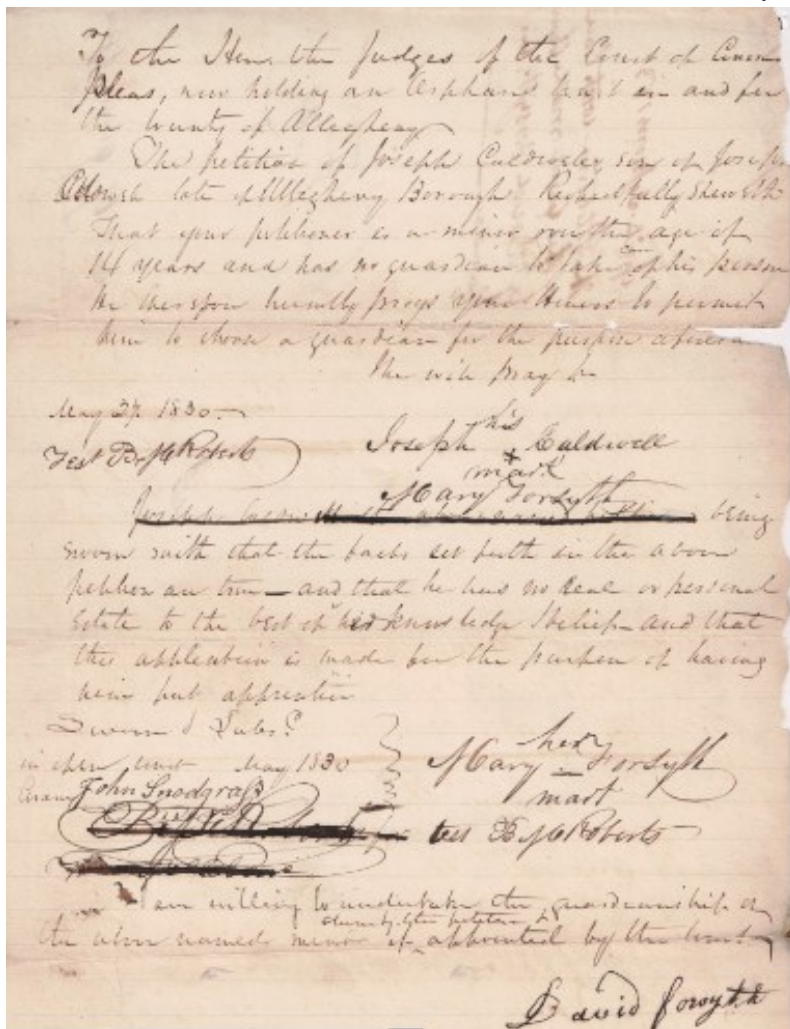 To the Hon. the Judges of the Court of Common
Pleas, now holding an Orphans Court in and for
the County of Allegheny
The petition of Joseph Caldwell son of Joseph
late of Allegheny Borough Respectfully sheweth
That your petitioner is a minor over the age of
14 years and has no guardian to take care of his person
he therefore humbly prays your Honors to permit
him to choose a guardian for the purpose aforesa
She will pray &c
May 1830.
Test B. McRoberts
Joseph his x mark Caldwell
Mary Forsyth
being
sworn saith that the facts set forth in the above
petition are true — and that he has no real or personal
estate to the best of her knowledge & belief — and that
this application is made for the purpose of having
him put apprentice
Sworn & Subs.
in open court May 1830
Mary her – mark Forsyth
John Snodgrass
test B. McRoberts
I am willing to undertake the guardianship of
the above named minor if appointed by the Court
David Forsyth